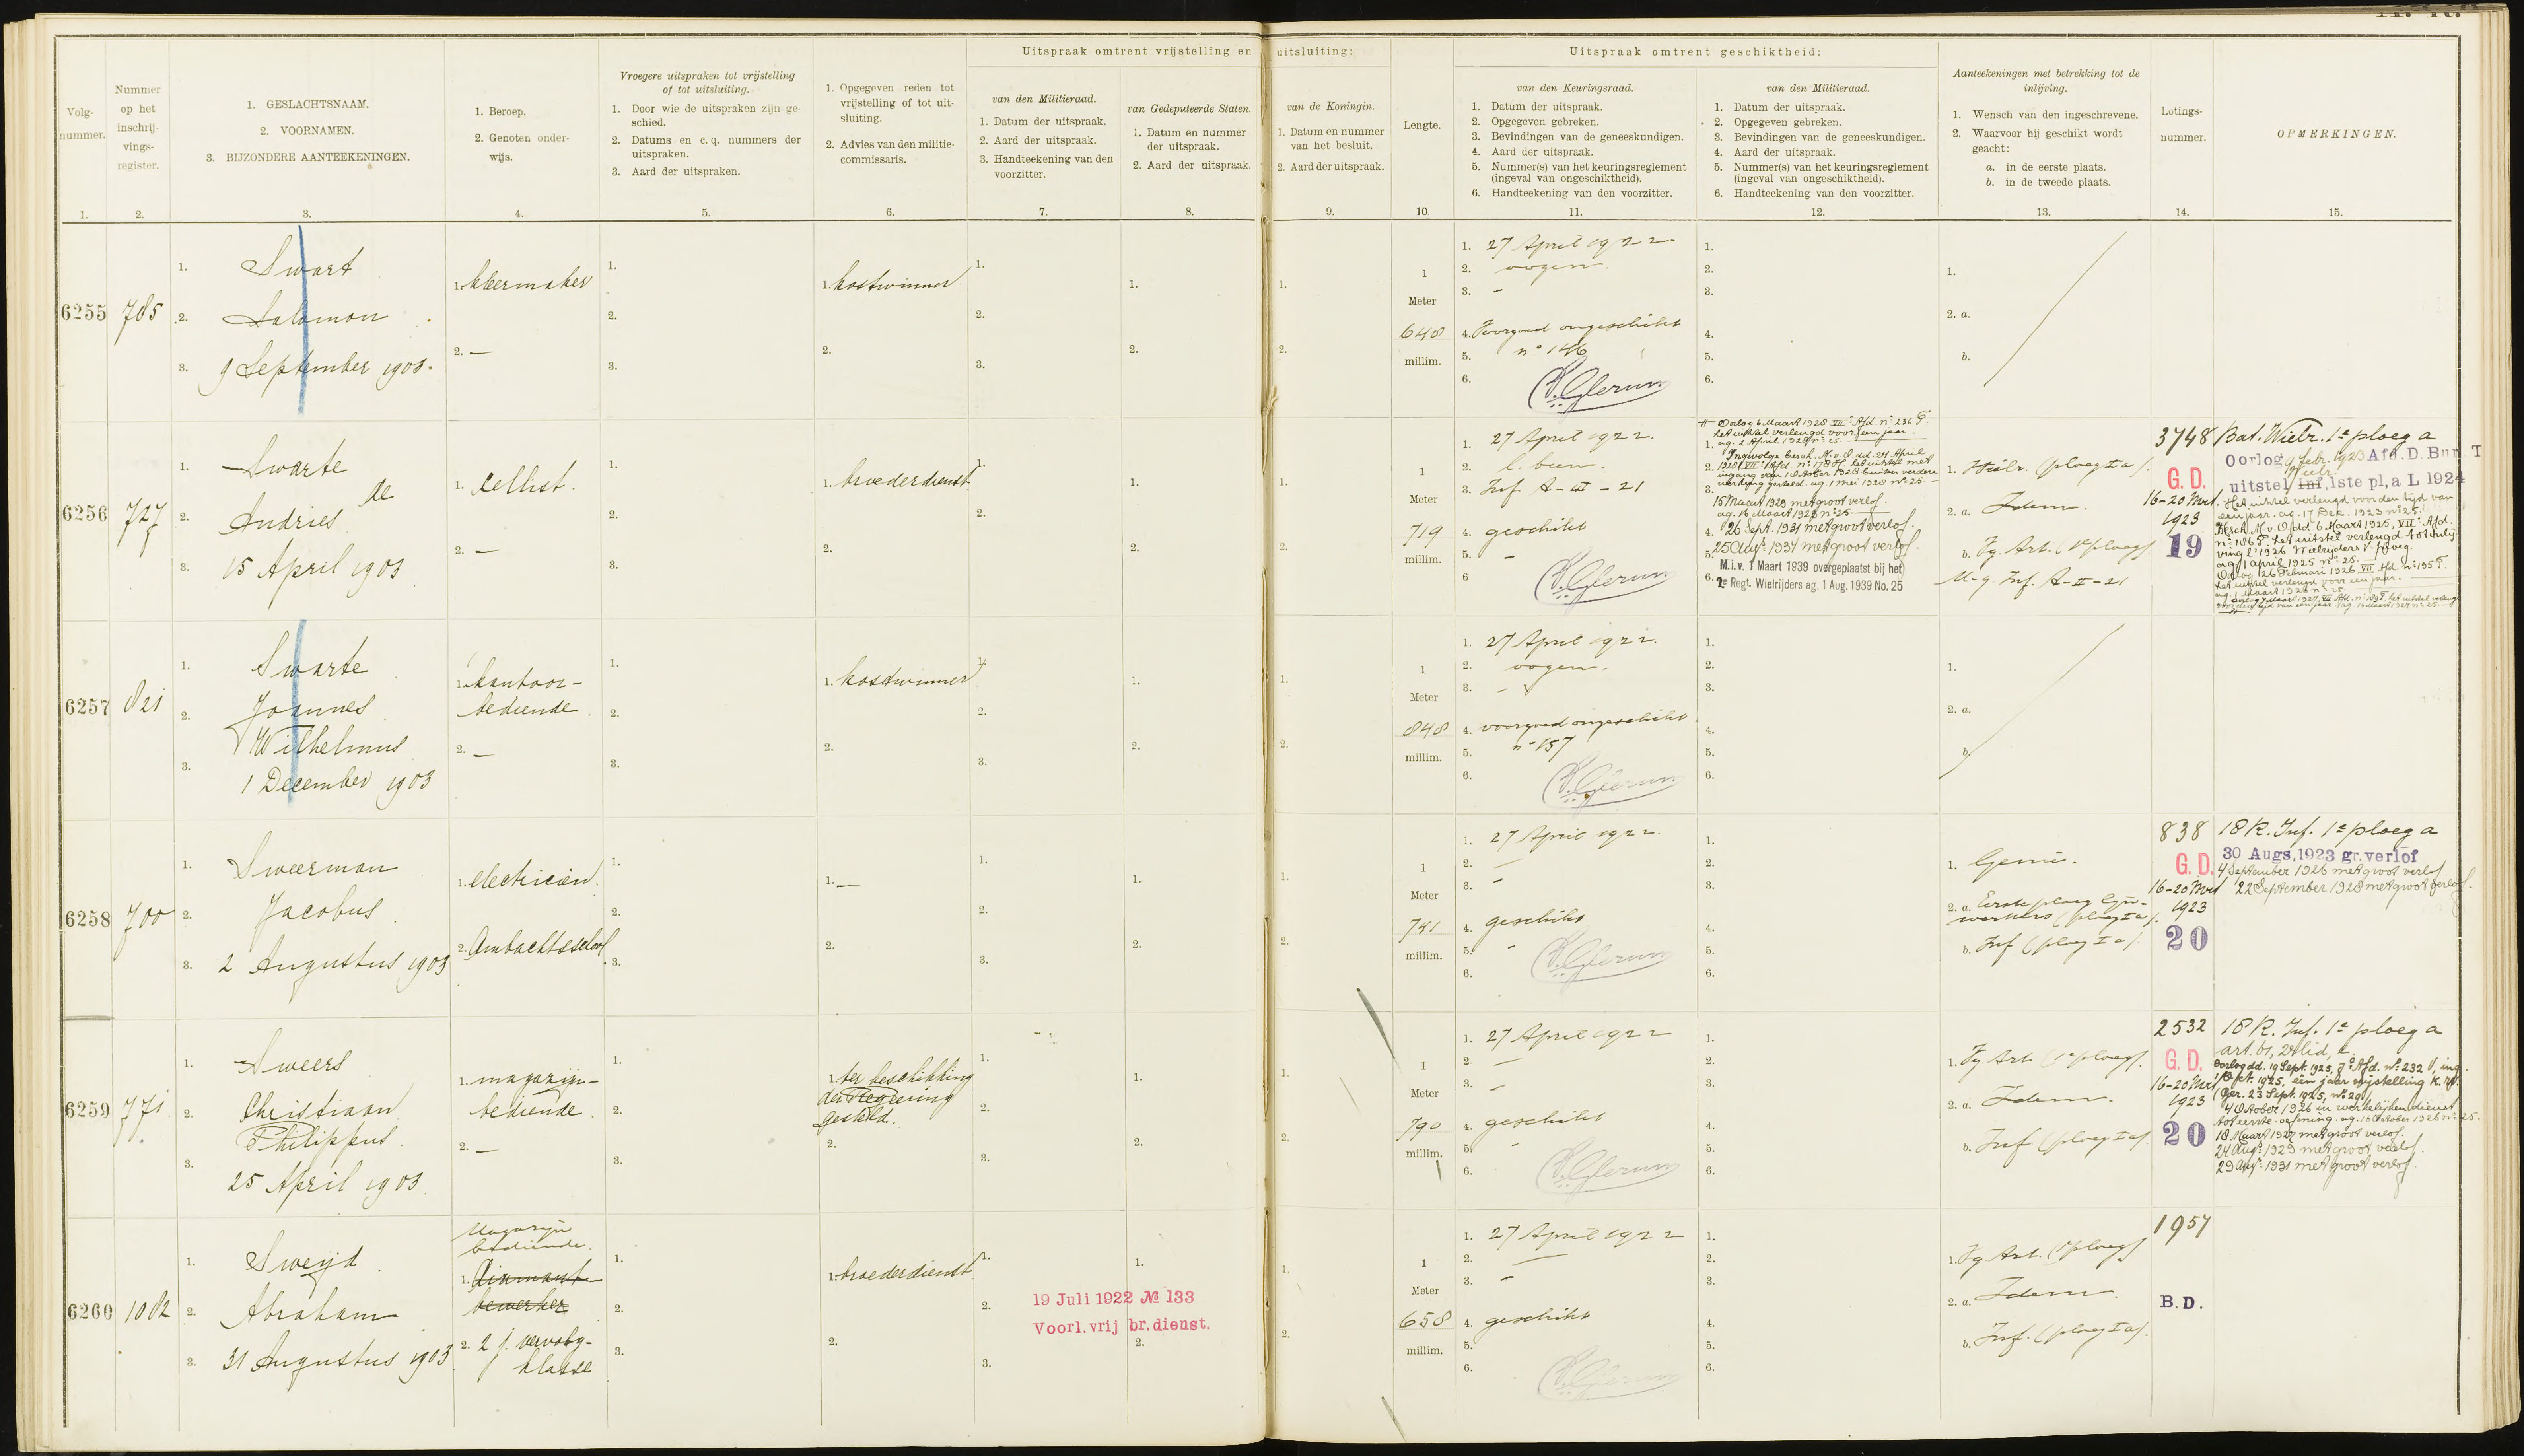 Uitspraak omtrent vrijstelling en uitsluiting:
Uitspraak omtrent geschiktheid:
Volg-
nummer.
1.
Nummer
op het
inschrij-
vings-
register.
2.
1. GESLACHTSNAAM.
2. VOORNAMEN.
3. BIJZONDERE AANTEEKENINGEN.
3.
1. Beroep.
2. Genoten onder-
wijs.
4.
Vroegere uitspraken tot vrijstelling
of tot uitsluiting.
1. Door wie de uitspraken zijn ge-
schied.
2. Datums en c.q. nummers der
uitspraken.
3. Aard der uitspraken.
5.
1. Opgegeven reden tot
vrijstelling of tot uit-
sluiting.
2. Advies van den militie-
commissaris.
6.
van den Militieraad.
1. Datum der uitspraak.
2. Aard der uitspraak.
3. Handteekening van den
voorzitter.
7.
van Gedeputeerde Staten.
1. Datum en nummer
der uitspraak.
2. Aard der uitspraak.
8.
van de Koningin.
1. Datum en nummer
van het besluit.
2. Aard der uitspraak.
9.
Lengte.
10.
van den Keuringsraad.
1. Datum der uitspraak.
2. Opgegeven gebreken.
3. Bevindingen van de geneeskundigen.
4. Aard der uitspraak.
5. Nummer(s) van het keuringsreglement
(ingeval van ongeschiktheid).
6. Handteekening van den voorzitter.
11.
van den Militieraad.
1. Datum der uitspraak.
2. Opgegeven gebreken.
3. Bevindingen van de geneeskundigen.
4. Aard der uitspraak.
5. Nummer(s) van het keuringsreglement
(ingeval van ongeschiktheid).
6. Handteekening van den voorzitter.
12.
Aanteekeningen met betrekking tot de
inlijving.
1. Wensch van den ingeschrevene.
2. Waarvoor hij geschikt wordt
geacht:
a. in de eerste plaats.
b. in de tweede plaats.
13.
Lotings-
nummer.
14.
OPMERKINGEN.
15.
6255
785
1. Swart
2. Salomon
3. 9 September 1903.
1. kleermaker
2. —
1. kostwinner
1
Meter
648
millim.
1. 27 April 1922
2. oogen.
3. -
4. Voorgoed ongeschikt
5. no 146
6. Glerum
6256
727
1. Swarte
de
2. Andries
3. 15 April 1903
1. cellist.
2. —
1. broederdienst
1
Meter
719
millim.
1. 27 April 1922.
2. l. been.
3. Inf A-III-21
4. geschikt
5. -
6 Glerum
Oorlog 6 Maart 1928 VIIe Afd. no 236
het uitstel verlengd voor een jaar.
ag. 2 April 1928 no 25.
Ingevolge besch. M. v. O. dd. 24 April
1928 VIIe Afd. no 178 het uitstel met
ingang van 1 October 1928 buiten verdere
werking gesteld. ag. 1 mei 1928 no 25
15 Maart 1929 met groot verlof.
26 Sept. 1931 met groot verlof.
25 Aug. 1937 met groot verlof.
M.i.v. 1 Maart 1939 overgeplaatst bij het
2e Regt. Wielrijders ag. 1 Aug. 1939 No. 25
1. Wielr. (ploeg I a).
2. a. Idem.
b. Vg. Art. (1e ploeg)
M-g Inf. A-II-21
3748
G.D.
16-20 Mrt.
1923
19
Bat. Wielr. 1e ploeg a
Oorlog 9 Febr. 1923 Afd. D. Bur. T
Wielr.
uitstel Inf, 1ste pl, a L 1924
Het uitstel verlengd voor den tijd van
een jaar. ag. 17 Dec. 1923 no 25.
Besch. M. v. O. dd 6 Maart 1925, VIIe Afd.
no 186 het uitstel verlengd tot inlij-
ving l. 1926 Wielrijders 1e ploeg.
ag. 1 april 1925 no 25.
Oorlog 26 Februari 1926 VII Afd no 195
het uitstel verlengd voor een jaar.
ag. 1 Maart 1926 no 25
6257
821
1. Swarte
2. Joannes
Wilhelmus
3. 1 December 1903
1. kantoor-
bediende
2. —
1. kostwinner
1
Meter
848
millim.
1. 27 April 1922.
2. oogen.
3. -
4. voorgoed ongeschikt
5. no 157
6. Glerum
6258
700
1. Sweerman
2. Jacobus
3. 2 Augustus 1903
1. electricien.
2. Ambachtsschool
1. —
1
Meter
741
millim.
1. 27 April 1922.
2. —
3. -
4. geschikt
5. -
6. Glerum
1. Genie.
2. a. Eerste ploeg lijn-
werkers (ploeg I a).
b. Inf (ploeg I a).
838
G.D.
16-20 Mrt
1923
20
18 R. Inf. 1e ploeg a
30 Augs, 1923 gr. verlof
4 September 1926 met groot verlof
22 September 1928 met groot verlof.
6259
771
1. Sweers
2. Christiaan
Philippus
3. 25 April 1903.
1. magazijn-
bediende.
2. —
1. ter beschikking
der Regeering
gesteld.
1
Meter
790
millim.
1. 27 April 1922
2 —
3. -
4. geschikt
5. -
6. Glerum
1. Vg Art. (1e ploeg).
2. a. Idem.
b. Inf (ploeg I a).
2532
G.D.
16-20 Mrt
1923
20
18 R. Inf. 1e ploeg a
art. 61, 2e lid, c.
Oorlog dd. 19 Sept. 1925, 7e Afd. no 232 V, ing.
1 Oct. 1925, één jaar vrijstelling K. M.
Ger. 23 Sept. 1925, no 29.
4 October 1926 in werkelijken dienst
tot eerste oefening. ag. 15 October 1926 no 25.
18 Maart 1927 met groot verlof.
24 Aug. 1929 met groot verlof.
29 Aug. 1931 met groot verlof.
6260
1082
1. Sweijd
2. Abraham
3. 31 Augustus 1903
Magazijn
bediende.
1. diamant-
bewerker
2. 2 j. vervolg-
klasse
1. broederdienst
19 Juli 1922 No 133
Voorl. vrij br. dienst.
1
Meter
658
millim.
1. 27 April 1922
2. —
3. -
4. geschikt
5.
6. Glerum
1. Vg Art. (1e ploeg)
2. a. Idem.
b. Inf. (ploeg I a).
1957
B.D.